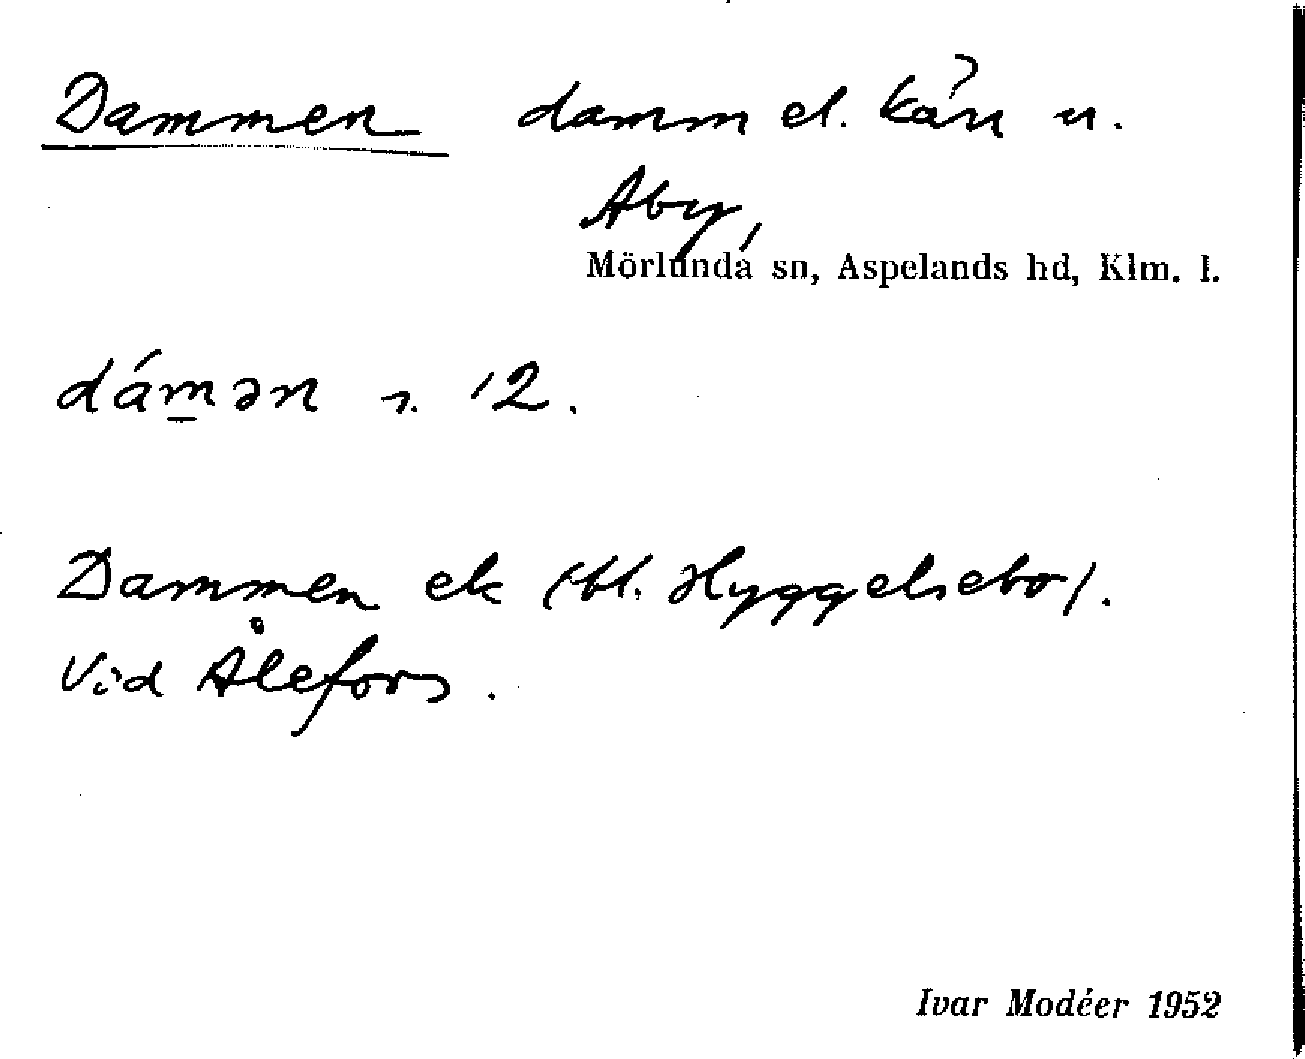 Dammen damm el. kärr u.
Åby,
Mörlunda sn, Aspelands hd, Klm. l.
dám̱ən 12.
Dammen ek (bl. Hyggelsebo).
Vid Ålefors.
Ivar Modéer 1952